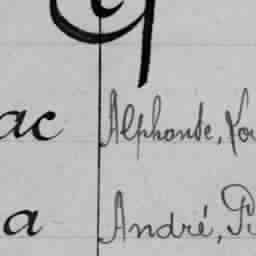 ac Alphonse, Lou
a André, Pi